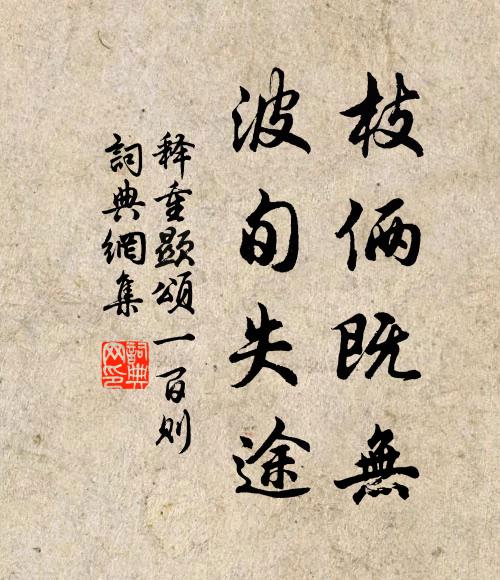 枝俩既無
波旬失途
释重顯頌一百则
詞典網集
詞典
网印